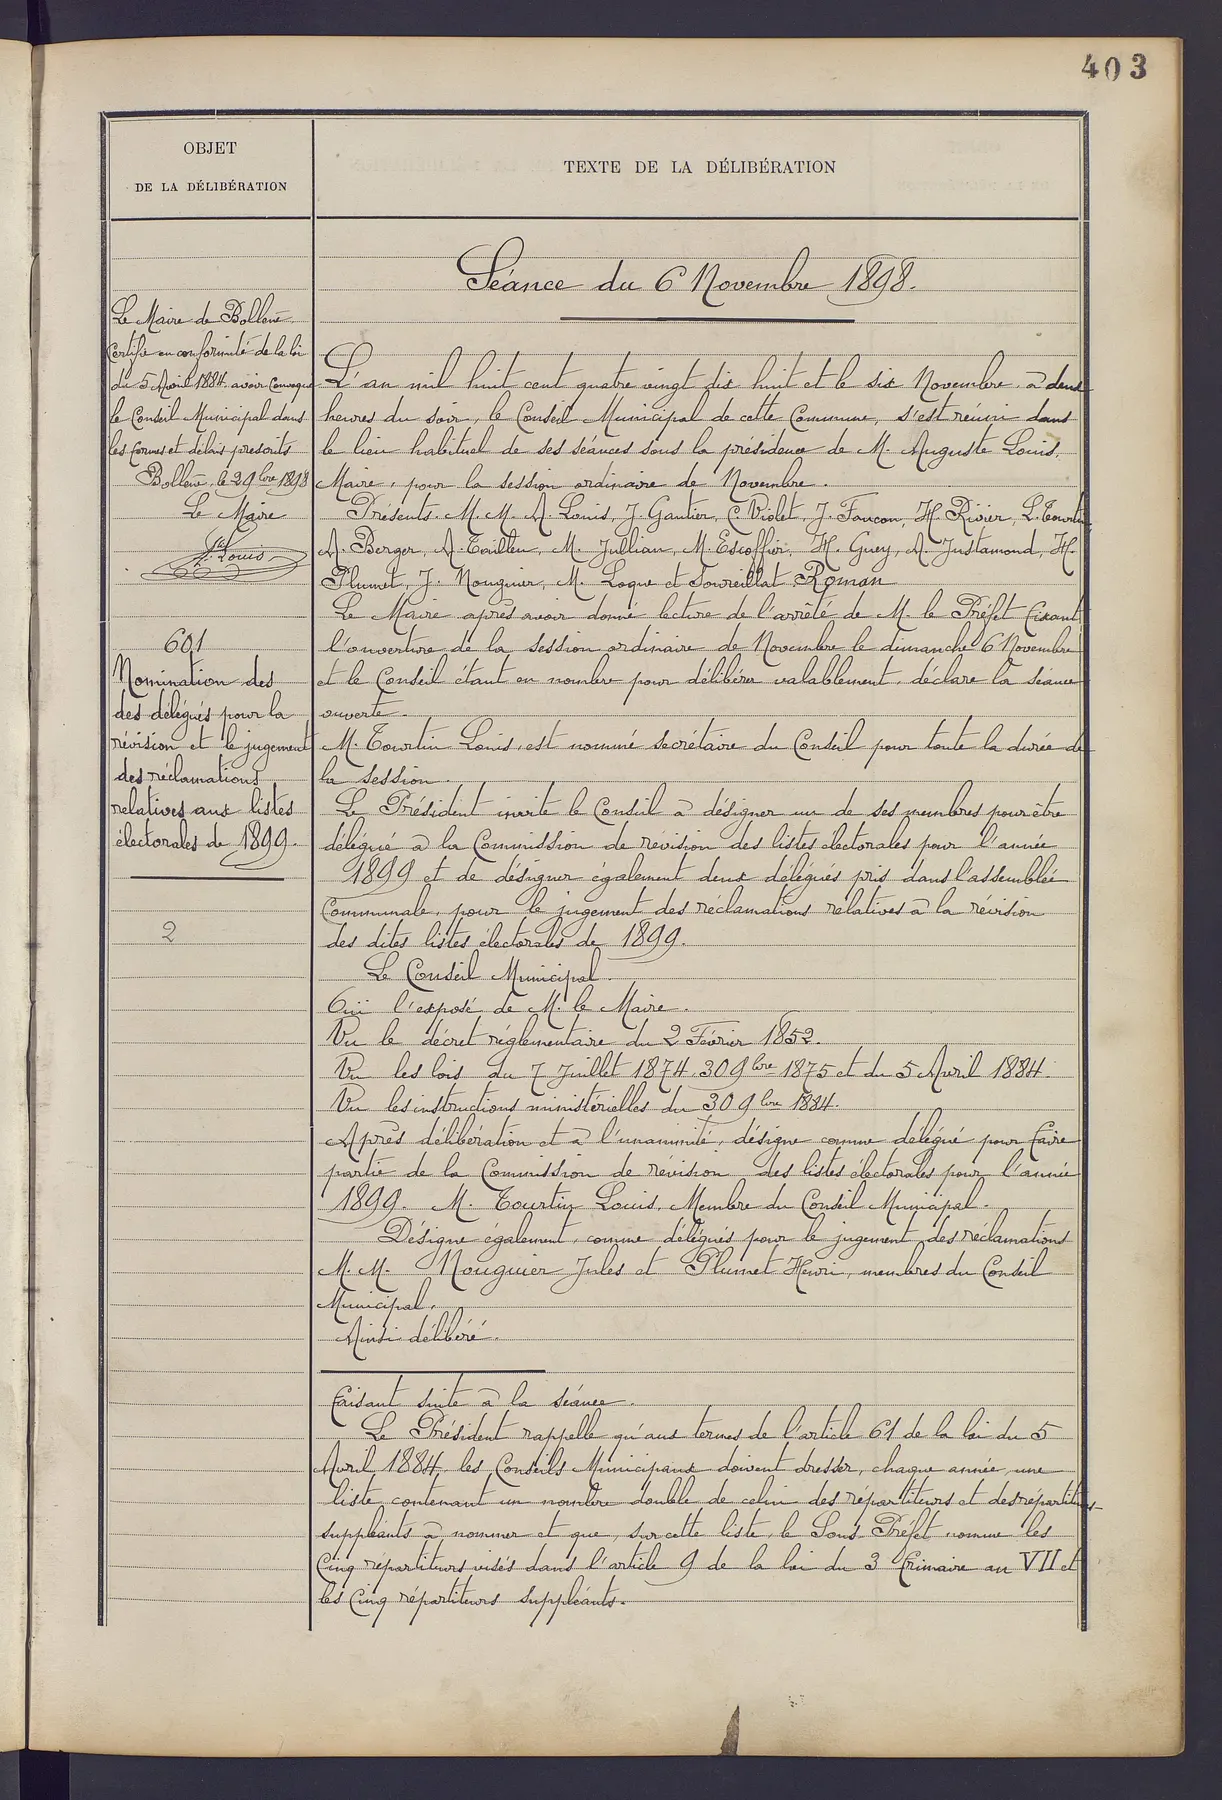 403
OBJET
DE LA DÉLIBÉRATION
TEXTE DE LA DÉLIBÉRATION
Le Maire de Bollène
Certifie en conformité de la loi
du 5 Avril 1884 avoir Convoqué
le Conseil Municipal dans
les formes et délais prescrits
Bollène, le 29bre 1898
Le Maire
Louis
601
Nomination des
des délégués pour la
révision et le jugement
des réclamations
relatives aux listes
électorales de 1899.
2
Séance du 6 Novembre 1898.
L'an mil huit cent quatre vingt dix huit et le six Novembre à deux
heures du soir, le Conseil Municipal de cette Commune, s'est réuni dans
le lieu habituel de ses séances sous la présidence de M. Auguste Louis,
Maire, pour la session ordinaire de Novembre.
Présents M.M. A. Louis, J. Gautier, C. Violet, J. Faucon, H. Rivier, L. Tourtin,
A. Berger, A. Tailleu, M. Jullian, M. Escoffier, H. Guey, A. Justamond, H.
Plumet, J. Nouguier, M. Loque et Soureillat Roman
Le Maire après avoir donné lecture de l'arrêté de M. le Préfet fixant
l'ouverture de la session ordinaire de Novembre le dimanche 6 Novembre
et le Conseil étant en nombre pour délibérer valablement, déclare la séance
ouverte.
M. Tourtin Louis, est nommé secrétaire du Conseil pour toute la durée de
la session.
Le Président invite le Conseil à désigner un de ses membres pour être
délégué à la Commission de révision des listes électorales pour l'année
1899 et de désigner également deux délégués pris dans l'assemblée
Communale, pour le jugement des réclamations relatives à la révision
des dites listes électorales de 1899.
Le Conseil Municipal.
Ouï l'exposé de M. le Maire.
Vu le décret réglementaire du 2 Février 1852.
Vu les lois du 7 Juillet 1874, 30 9bre 1875 et du 5 Avril 1884.
Vu les instructions ministérielles du 30 9bre 1884.
Après délibération et à l'unanimité, désigne comme délégué pour faire
partie de la Commission de révision des listes électorales pour l'année
1899. M. Tourtin Louis, Membre du Conseil Municipal.
Désigne également, comme délégués pour le jugement des réclamations
M.M. Nouguier Jules et Plumet Henri, membres du Conseil
Municipal.
Ainsi délibéré.
Faisant suite à la séance.
Le Président rappelle qu'aux termes de l'article 61 de la loi du 5
Avril 1884, les Conseils Municipaux doivent dresser, chaque année, une
liste, contenant un nombre double de celui des répartiteurs et des répartiteurs
suppléants à nommer et que, sur cette liste, le Sous Préfet nomme les
Cinq répartiteurs visés dans l'article 9 de la loi du 3 Frimaire an VII et
les Cinq répartiteurs suppléants.